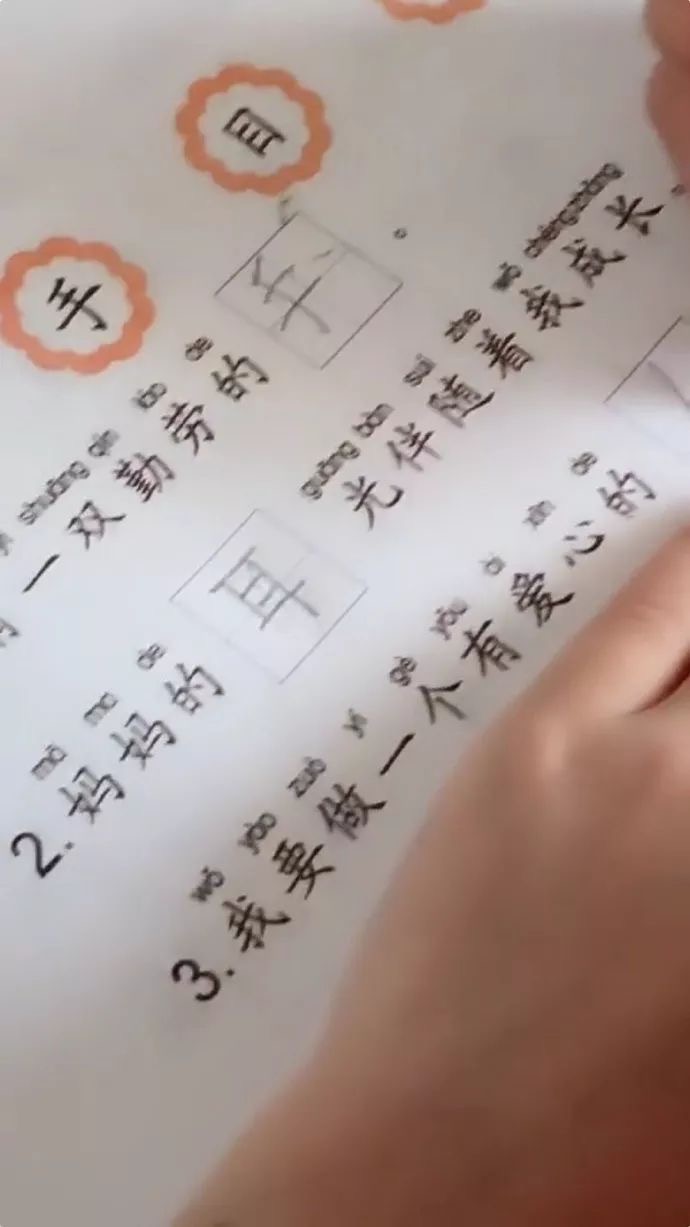 手 目
yì shuāng qín láo de
一双勤劳的手。
mā ma de guāng bàn suí zhe wǒ chéngzhǎng
2. 妈妈的耳光伴随着我成长。
wǒ yào zuò yí gè yǒu ài xīn de
3. 我要做一个有爱心的